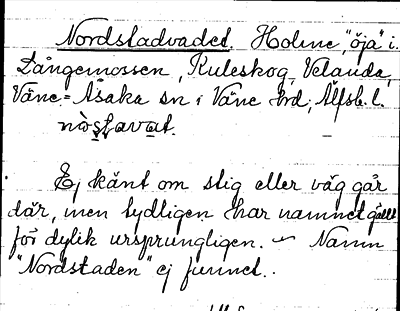 Nordstadvadet. Holme, "öja" i
Långemossen, Kuleskog, Velanda,
Väne-Åsaka sn i Väne hd, Älfsb. l.
nòstavat.
Ej känt om stig eller väg går
där, men tydligen har namnet gällt
för dylik ursprungligen. – Namn
"Nordstaden" ej funnet.